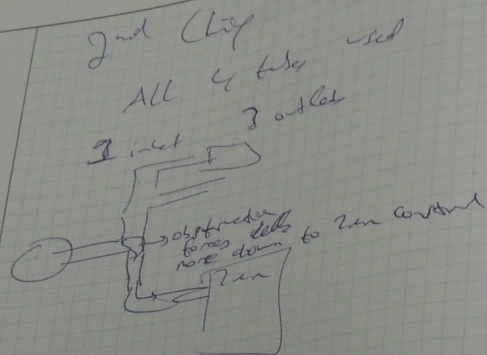 2nd Chip
All 4 tubes used
1 inlet 3 outlet
obstruction
forces cells
more down to 2nm control
2nm